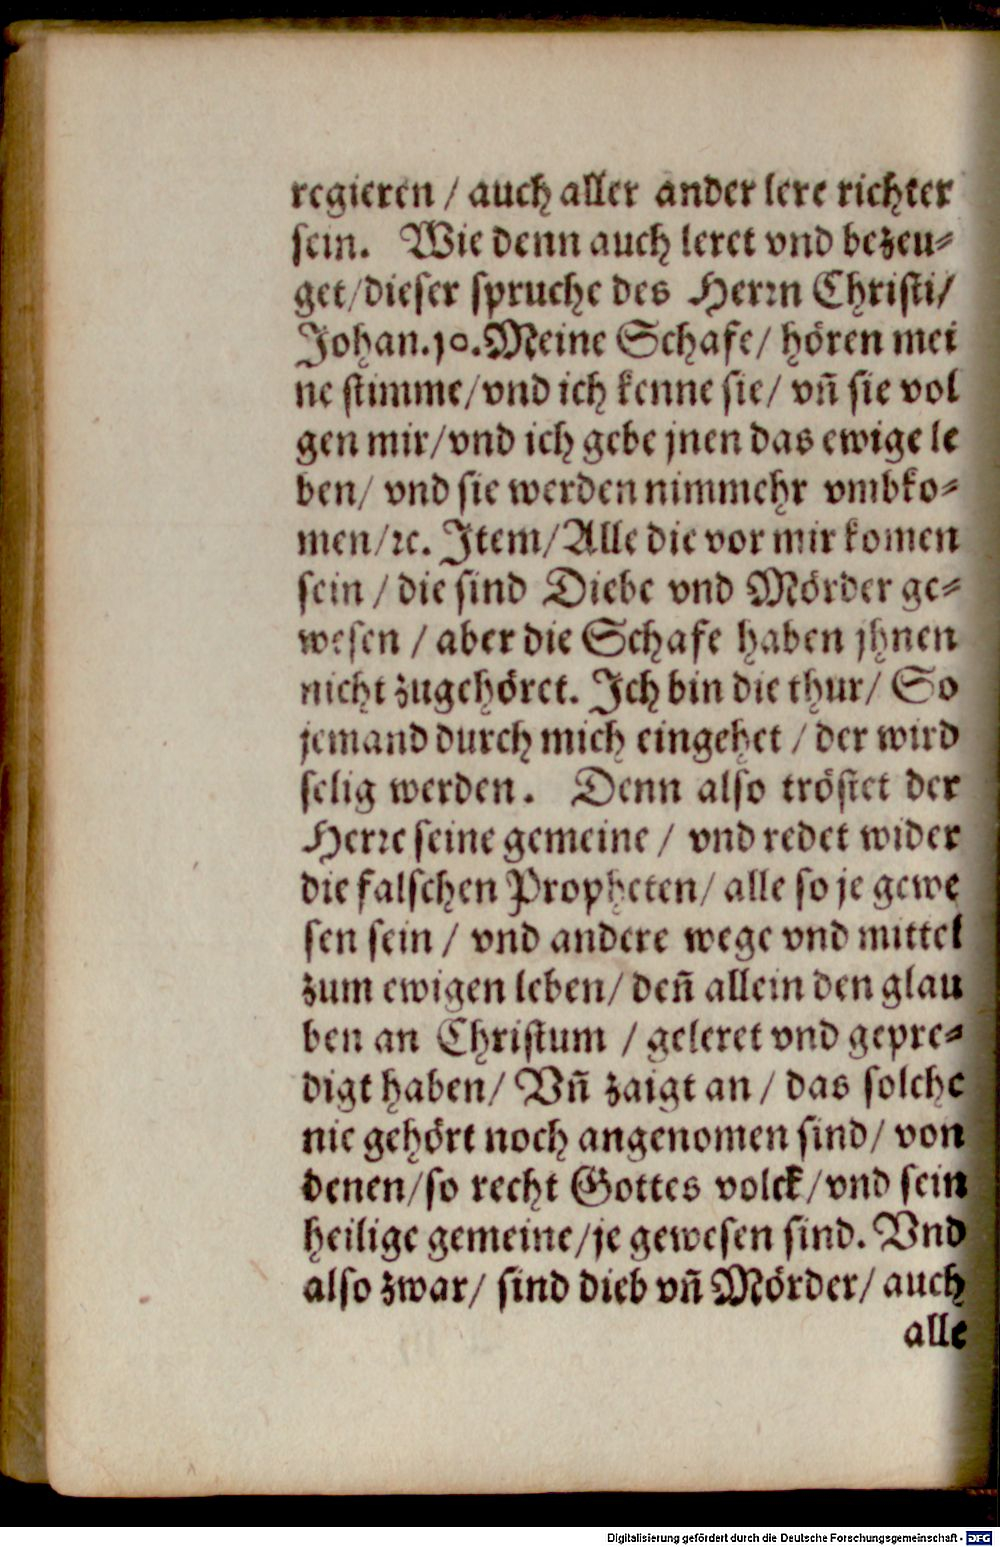 regieren / auch aller ander lere richter
sein. Wie denn auch leret vnd bezeu⸗
get/dieser spruche des Herrn Christi/
Johan.10.Meine Schafe/ hören mei
ne stimme/vnd ich kenne sie/ vñ sie vol
gen mir/vnd ich gebe jnen das ewige le
ben/ vnd sie werden nimmehr vmbko⸗
men/ꝛc. Item/Alle die vor mir komen
sein / die sind Diebe vnd Mörder ge⸗
wesen / aber die Schafe haben jhnen
nicht zugehöret. Ich bin die thur/ So
jemand durch mich eingehet / der wird
selig werden. Denn also tröstet der
Herre seine gemeine / vnd redet wider
die falschen Propheten/ alle so je gewe
sen sein / vnd andere wege vnd mittel
zum ewigen leben/ deñ allein den glau
ben an Christum / geleret vnd gepre⸗
digt haben/ Vñ zaigt an / das solche
nie gehört noch angenomen sind/ von
denen/so recht Gottes volck/vnd sein
heilige gemeine/je gewesen sind. Vnd
also zwar/ sind dieb vñ Mörder/ auch
alle
Digitalisierung gefördert durch die Deutsche Forschungsgemeinschaft - DFG